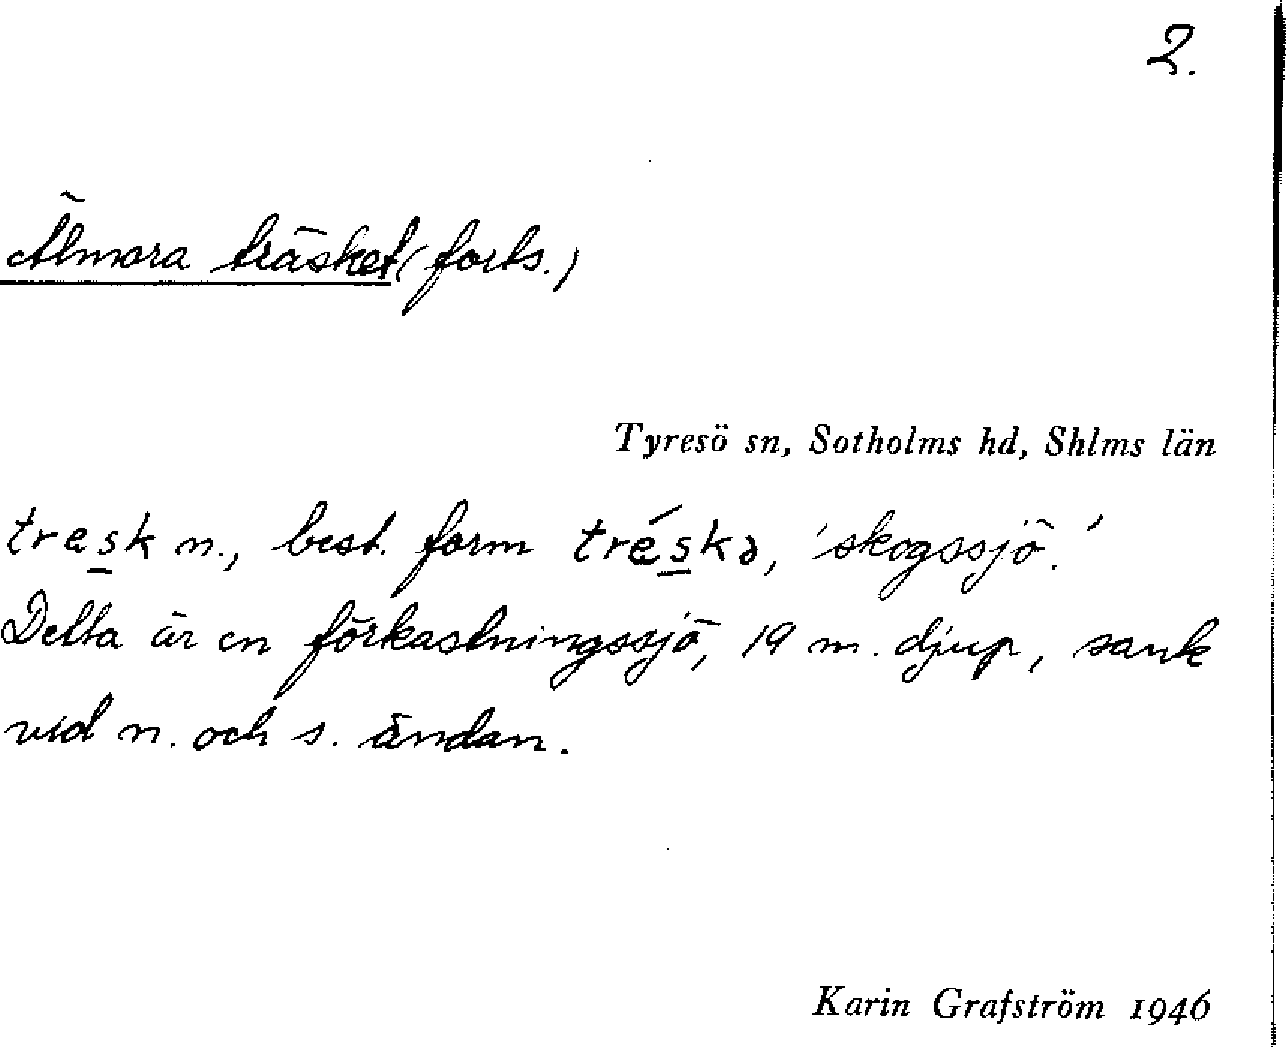 2.
Älmora träsket (forts.)
Tyresö sn, Sotholms hd, Shlms län
tresk n., best. form tréskə, 'skogssjö.'
Detta är en förkastningssjö, 19 m. djup, sank
vid n. och s. ändan.
Karin Grafström 1946